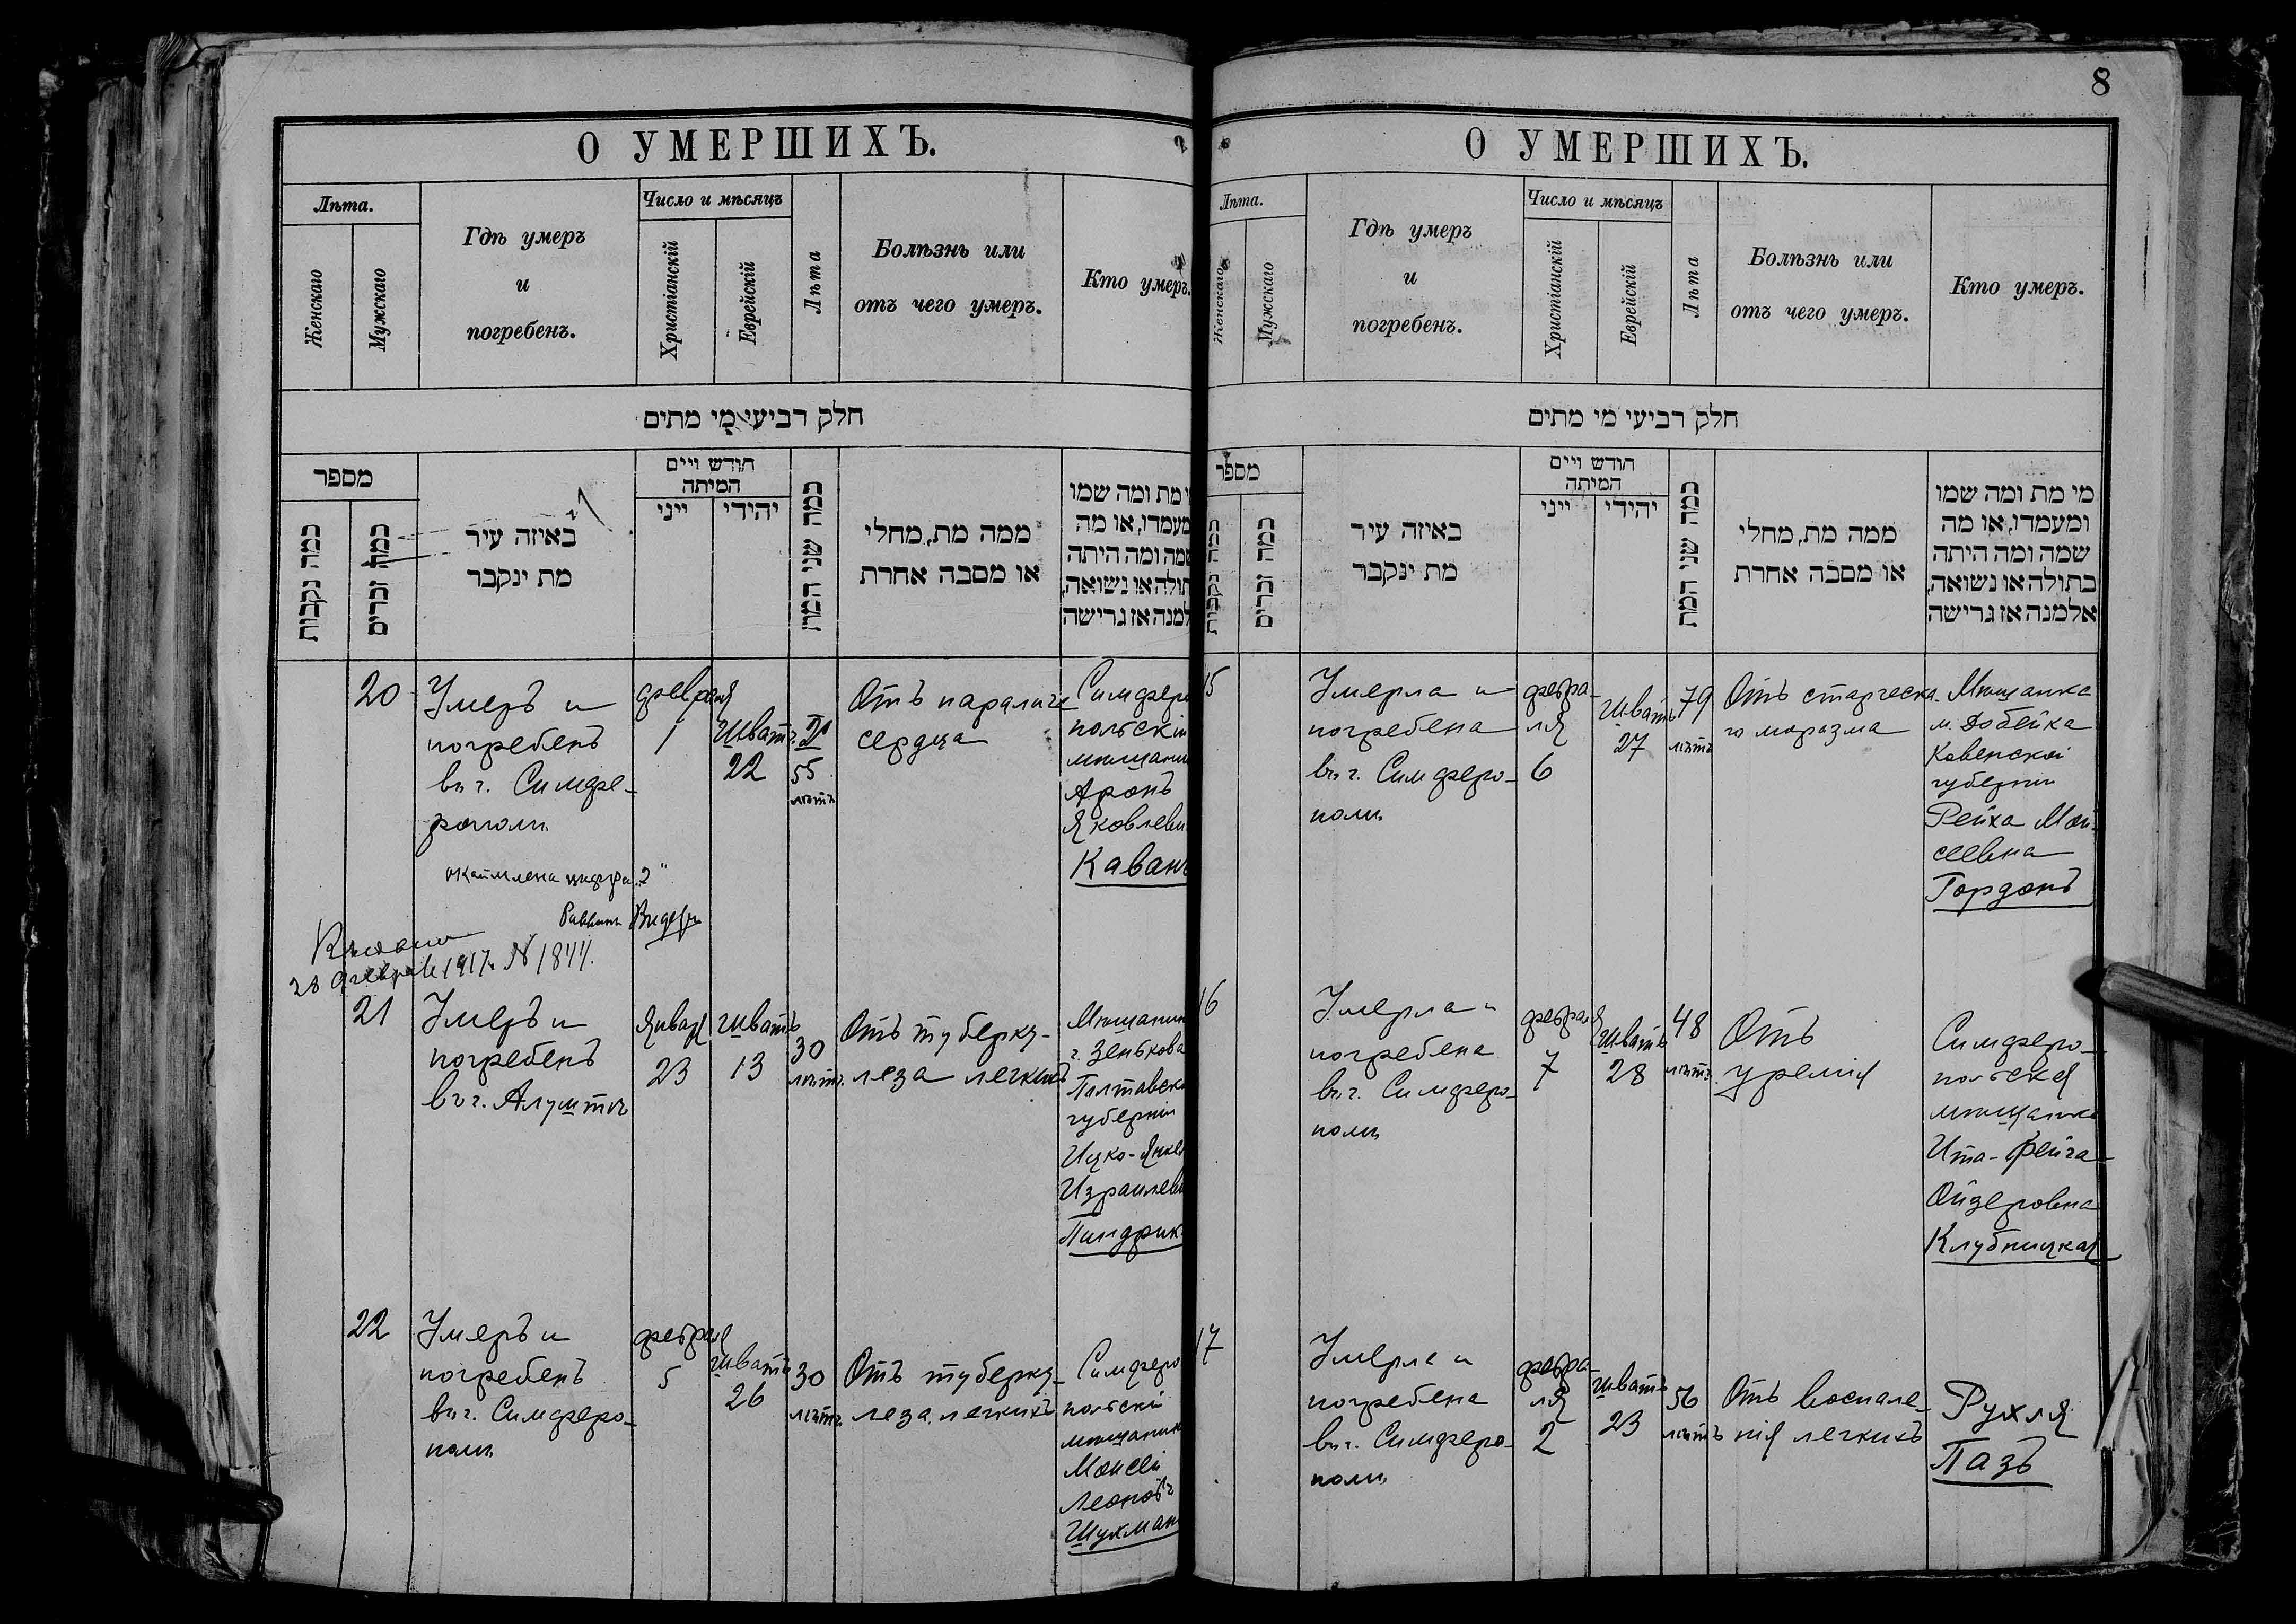 О УМЕРШИХЪ.
Лѣта.
Женскаго
Мужскаго
Гдѣ умеръ
и
погребенъ.
Число и мѣсяцъ
Христіанскій
Еврейскій
Лѣта
Болѣзнь или
отъ чего умеръ.
Кто умеръ.
חלק רביעי מי מתים
מספר
כמה נקבות
כמה זכרים
באיזה עיר
מת ינקבר
חודש ויים
המיתה
ייני
יהידי
כמה שני המת
ממה מת, מחלי
או מסבה אחרת
י מת ומה שמו
מעמדו, או מה
שמה ומה היתה
תולה או נשואה,
למנה אז גרישה
20
Умеръ и
погребенъ
въ г. Симфе-
рополѣ
февраля
1
Шватъ
22
55
лѣтъ
Отъ паралича
сердца
Симферо
польскій
мѣщанин
Аронъ
Яковлеви
Каванъ
Раввинъ
28 февраля 1917 г. № 1844.
21
Умеръ и
погребенъ
въ г. Алуштѣ
Января
23
Шватъ
13
30
лѣтъ
Отъ туберку-
леза легкихъ
Мѣщанин
г. Зенькова
Полтавско
губерніи
Ицко-Янкел
Израилеви
Пиндрик
22
Умеръ и
погребенъ
въ г. Симферо-
полѣ
февраля
5
Шватъ
26
30
лѣтъ
Отъ туберку-
леза легкихъ
Симферо
польскій
мѣщанин
Моисей
Леоновъ
Шухман
8
О УМЕРШИХЪ.
Лѣта.
Женскаго
Мужскаго
Гдѣ умеръ
и
погребенъ.
Число и мѣсяцъ
Христіанскій
Еврейскій
Лѣта
Болѣзнь или
отъ чего умеръ.
Кто умеръ.
חלק רביעי מי מתים
מספר
כמה נקבות
כמה זכרים
באיזה עיר
מת ינקבר
חודש ויים
המיתה
ייני
יהידי
כמה שני המת
ממה מת, מחלי
או מסבה אחרת
מי מת ומה שמו
ומעמדו, או מה
שמה ומה היתה
בתולה או נשואה,
אלמנה אז גרישה
15
Умерла и
погребена
въ г. Симферо-
полѣ
февра-
ля
6
Шватъ
27
79
лѣтъ
Отъ старческа-
го маразма
Мѣщанка
м. Добейка
Ковенской
губерніи
Рейха Мои-
сеевна
Гордонъ
16
Умерла и
погребена
въ г. Симферо-
полѣ
февраля
7
Шватъ
28
48
лѣтъ
Отъ
уреміи
Симферо-
польская
мѣщанка
Ита-Фейга
Ойзеровна
Клубницкая
17
Умерла и
погребена
въ г. Симферо-
полѣ
февра-
ля
2
Шватъ
23
56
лѣтъ
Отъ воспале-
нія легкихъ
Рухля
Пазъ